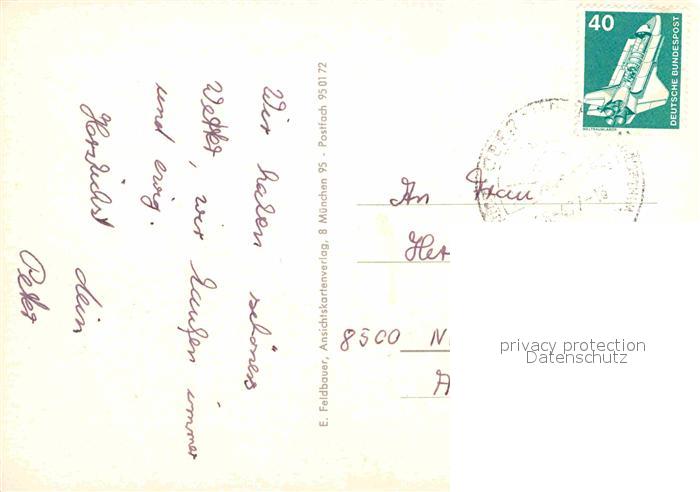 Wir haben schönes
Wetter, wir laufen immer
und ewig.
Herzlichst dein
Peter
E. Feldbauer, Ansichtskartenverlag, 8 München 95 - Postfach 950172
40
DEUTSCHE BUNDESPOST
WELTRAUMLABOR
An Frau
He
8500 N
privacy protection
Datenschutz